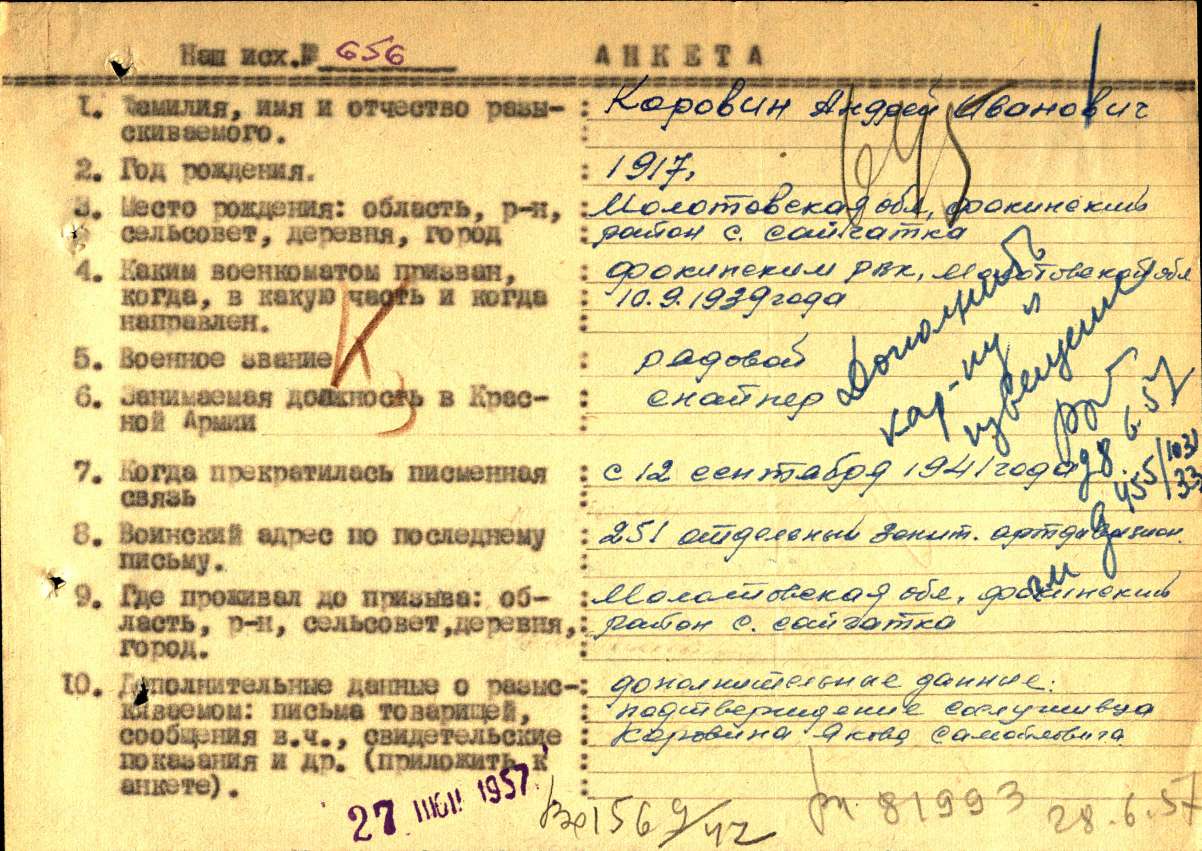 Наш исх.№ 656 АНКЕТА
1. Фамилия, имя и отчество разы- : Коровин Андрей Иванович
скиваемого. :
2. Год рождения. : 1917.
3. Место рождения: область, р-н, : Молотовская обл, фокинский
сельсовет, деревня, город : район с. сайгатка
4. Каким военкоматом призван, : фокинским рвк, Молотовской обл
когда, в какую часть и когда : 10.9.1939 года
направлен. :
5. Военное звание : радовой
6. Занимаемая должность в Крас- : снайпер
ной Армии :
7. Когда прекратилась писменная : с 12 сентабрд 1941 года
связь :
8. Воинский адрес по последнему : 251 отдельный зенит. артдивизион.
письму. :
9. Где проживал до призыва: об- : Молотовская обл, фокинский
ласть, р-н, сельсовет,деревня, : район с. сайгатка
город. :
10. Дополнительные данные о разыс- : дополнительные данные:
киваемом: письма товарищей, : подтверждение сослуживца
сообщения в.ч., свидетельские : Коровина Якова Самойловича
показания и др. (приложить к :
анкете). :
695
К
З
Дополнить
кар-ку и
извещение
28.6.57
д 455/1031
33
27 ИЮН 1957
вх 1569/42
рп 81993
28.6.57